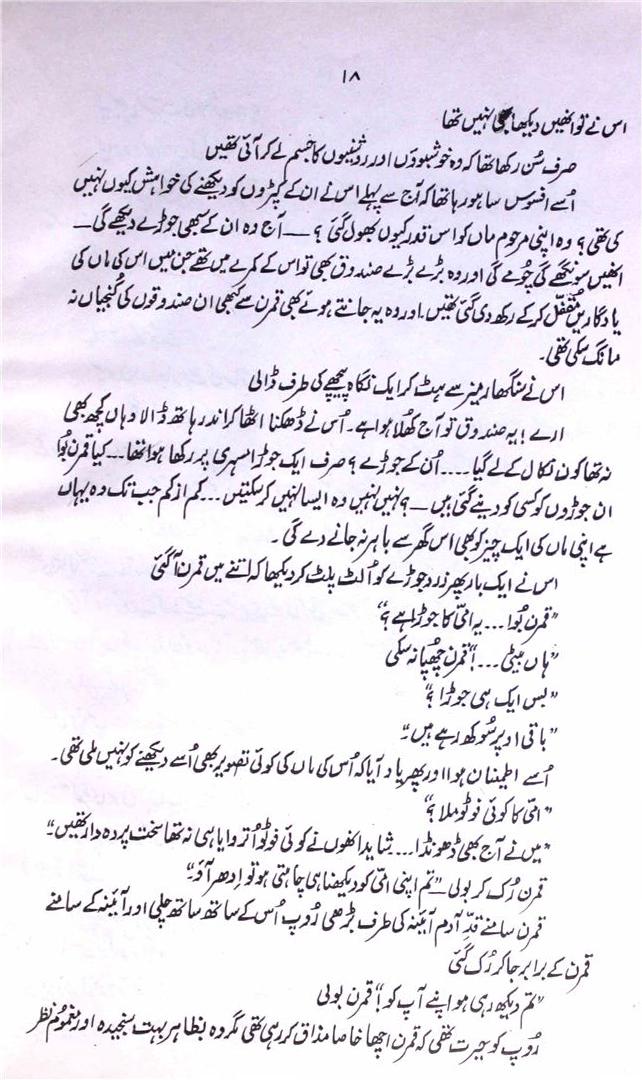 ۱۸
اس نے تو انھیں دیکھا بھی نہیں تھا
صرف سُن رکھا تھا کہ وہ خوشبوؤں اور روشنیوں کا جسم لے کر آئی تھیں
اُسے افسوس سا ہو رہا تھا کہ آج سے پہلے اس نے ان کے کپڑوں کو دیکھنے کی خواہش کیوں نہیں
کی تھی؟ وہ اپنی مرحوم ماں کو اس قدر کیوں بھول گئی؟ — آج وہ ان کے سبھی جوڑے دیکھے گی —
انھیں سونگھے گی چومے گی اور وہ بڑے بڑے صندوق بھی تو اس کے کمرے میں تھے جن میں اس کی ماں کی
یادگاریں مُقفّل کر کے رکھ دی گئی تھیں۔ اور وہ یہ جانتے ہوئے بھی قمرن سے کبھی ان صندوقوں کی کُنجیاں نہ
مانگ سکی تھی۔
اس نے سنگھار میز سے ہٹ کر ایک نگاہ پیچھے کی طرف ڈالی
ارے! یہ صندوق تو آج کھُلا ہوا ہے۔ اُس نے ڈھکنا اٹھا کر اندر ہاتھ ڈالا وہاں کچھ بھی
نہ تھا کون نکال کے لے گیا.... اُن کے جوڑے؟ صرف ایک جوڑا مسہری پر رکھا ہوا تھا... کیا قمرن بُوا
ان جوڑوں کو کسی کو دینے گئی ہیں —؟ نہیں نہیں وہ ایسا نہیں کر سکتیں... کم از کم جب تک وہ یہاں
ہے اپنی ماں کی ایک چیز کو بھی اس گھر سے باہر نہ جانے دے گی۔
اس نے ایک بار پھر زرد جوڑے کو اُلٹ پلٹ کر دیکھا کہ اتنے میں قمرن آ گئی
”قمرن بُوا... یہ امّی کا جوڑا ہے؟“
”ہاں بیٹی...!“ قمرن چھُپا نہ سکی
”بس ایک ہی جوڑا؟“
”باقی اوپر سُوکھ رہے ہیں۔“
اُسے اطمینان ہوا اور پھر یاد آیا کہ اُس کی ماں کی کوئی تصویر بھی اُسے دیکھنے کو نہیں ملی تھی۔
”امّی کا کوئی فوٹو ملا؟“
”میں نے آج بھی ڈھونڈا... شاید انھوں نے کوئی فوٹو اُتروایا ہی نہ تھا سخت پردہ دار تھیں۔“
قمرن رُک کر بولی — ”تم اپنی امّی کو دیکھنا ہی چاہتی ہو تو اِدھر آؤ“
قمرن سامنے قدِّ آدم آئینہ کی طرف بڑھی رُوپ اُس کے ساتھ ساتھ چلی اور آئینہ کے سامنے
قمرن کے برابر جا کر رُک گئی
”تم دیکھ رہی ہو اپنے آپ کو!“ قمرن بولی
رُوپ کو حیرت تھی کہ قمرن اچھا خاصا مذاق کر رہی تھی مگر وہ بظاہر بہت سنجیدہ اور مغموم نظر